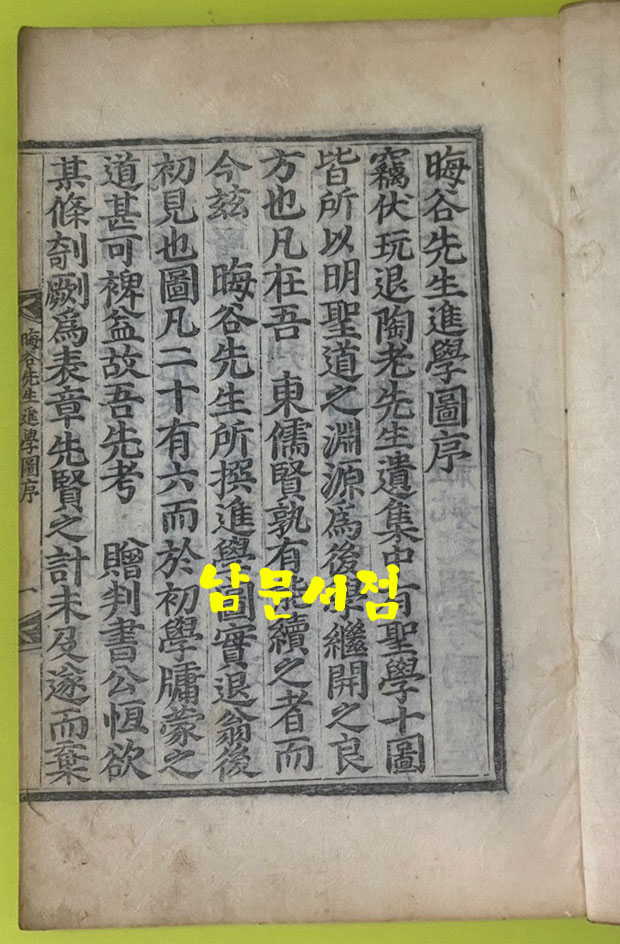 晦谷先生進學圖序
竊伏玩退陶老先生遺集中有聖學十圖
皆所以明聖道之淵源爲後學繼開之良
方也凡在吾 東儒賢孰有能續之者而
今玆 晦谷先生所撰進學圖實退翁後
初見也圖凡二十有六而於初學牖蒙之
道甚可裨益故吾先考 贈判書公恆欲
某條剞劂爲表章先賢之計未及遂而棄
晦谷先生進學圖序
一
남문서점